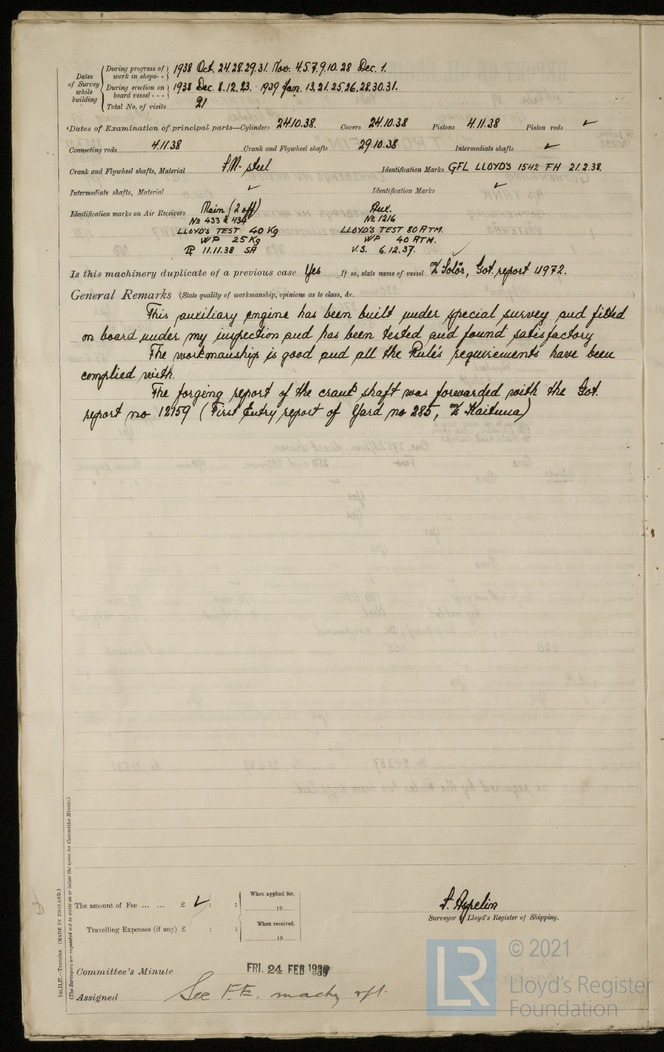 Dates of Survey while building
During progress of work in shops - - 1938 Oct. 24.28.29.31. Nov. 4.5.7.9.10.28 Dec. 1.
During erection on board vessel - - - 1938 Dec. 8.12.23. 1939 Jan. 13.21.25.26.28.30.31.
Total No. of visits 21
Dates of Examination of principal parts—Cylinders 24.10.38. Covers 24.10.38 Pistons 4.11.38 Piston rods ✓
Connecting rods 4.11.38 Crank and Flywheel shafts 29.10.38 Intermediate shafts ✓
Crank and Flywheel shafts, Material S.M. steel Identification Marks GFL LLOYD'S 1542 FH 21.2.38.
Intermediate shafts, Material ✓ Identification Marks ✓
Identification marks on Air Receivers Main (2 off) Aux.
No 433 & 434 No 1216
LLOYD'S TEST 40 Kg LLOYD'S TEST 80 ATM.
WP 25 Kg WP 40 ATM.
11.11.38 SA V.S. 6.12.37.
Is this machinery duplicate of a previous case Yes If so, state name of vessel Solör, Got. report 11972.
General Remarks (State quality of workmanship, opinions as to class, &c.
This auxiliary engine has been built under special survey and fitted
on board under my inspection and has been tested and found satisfactory
The workmanship is good and all the Rule's requirements have been
complied with.
The forging report of the crank shaft was forwarded with the Got.
report no 12159 (First Entry report of Yard no 285, Kaituna)
The amount of Fee ... ... £ ✓ : :
When applied for,
19
Travelling Expenses (if any) £ : :
When received,
19
Surveyor Lloyd's Register of Shipping.
Committee's Minute FRI. 24 FEB 1939
Assigned See F.E. machy rpt.
(MADE IN ENGLAND.)
(The Surveyors are requested not to write on or below the space for Committee's Minute.)
© 2021
LR
Lloyd's Register
Foundation